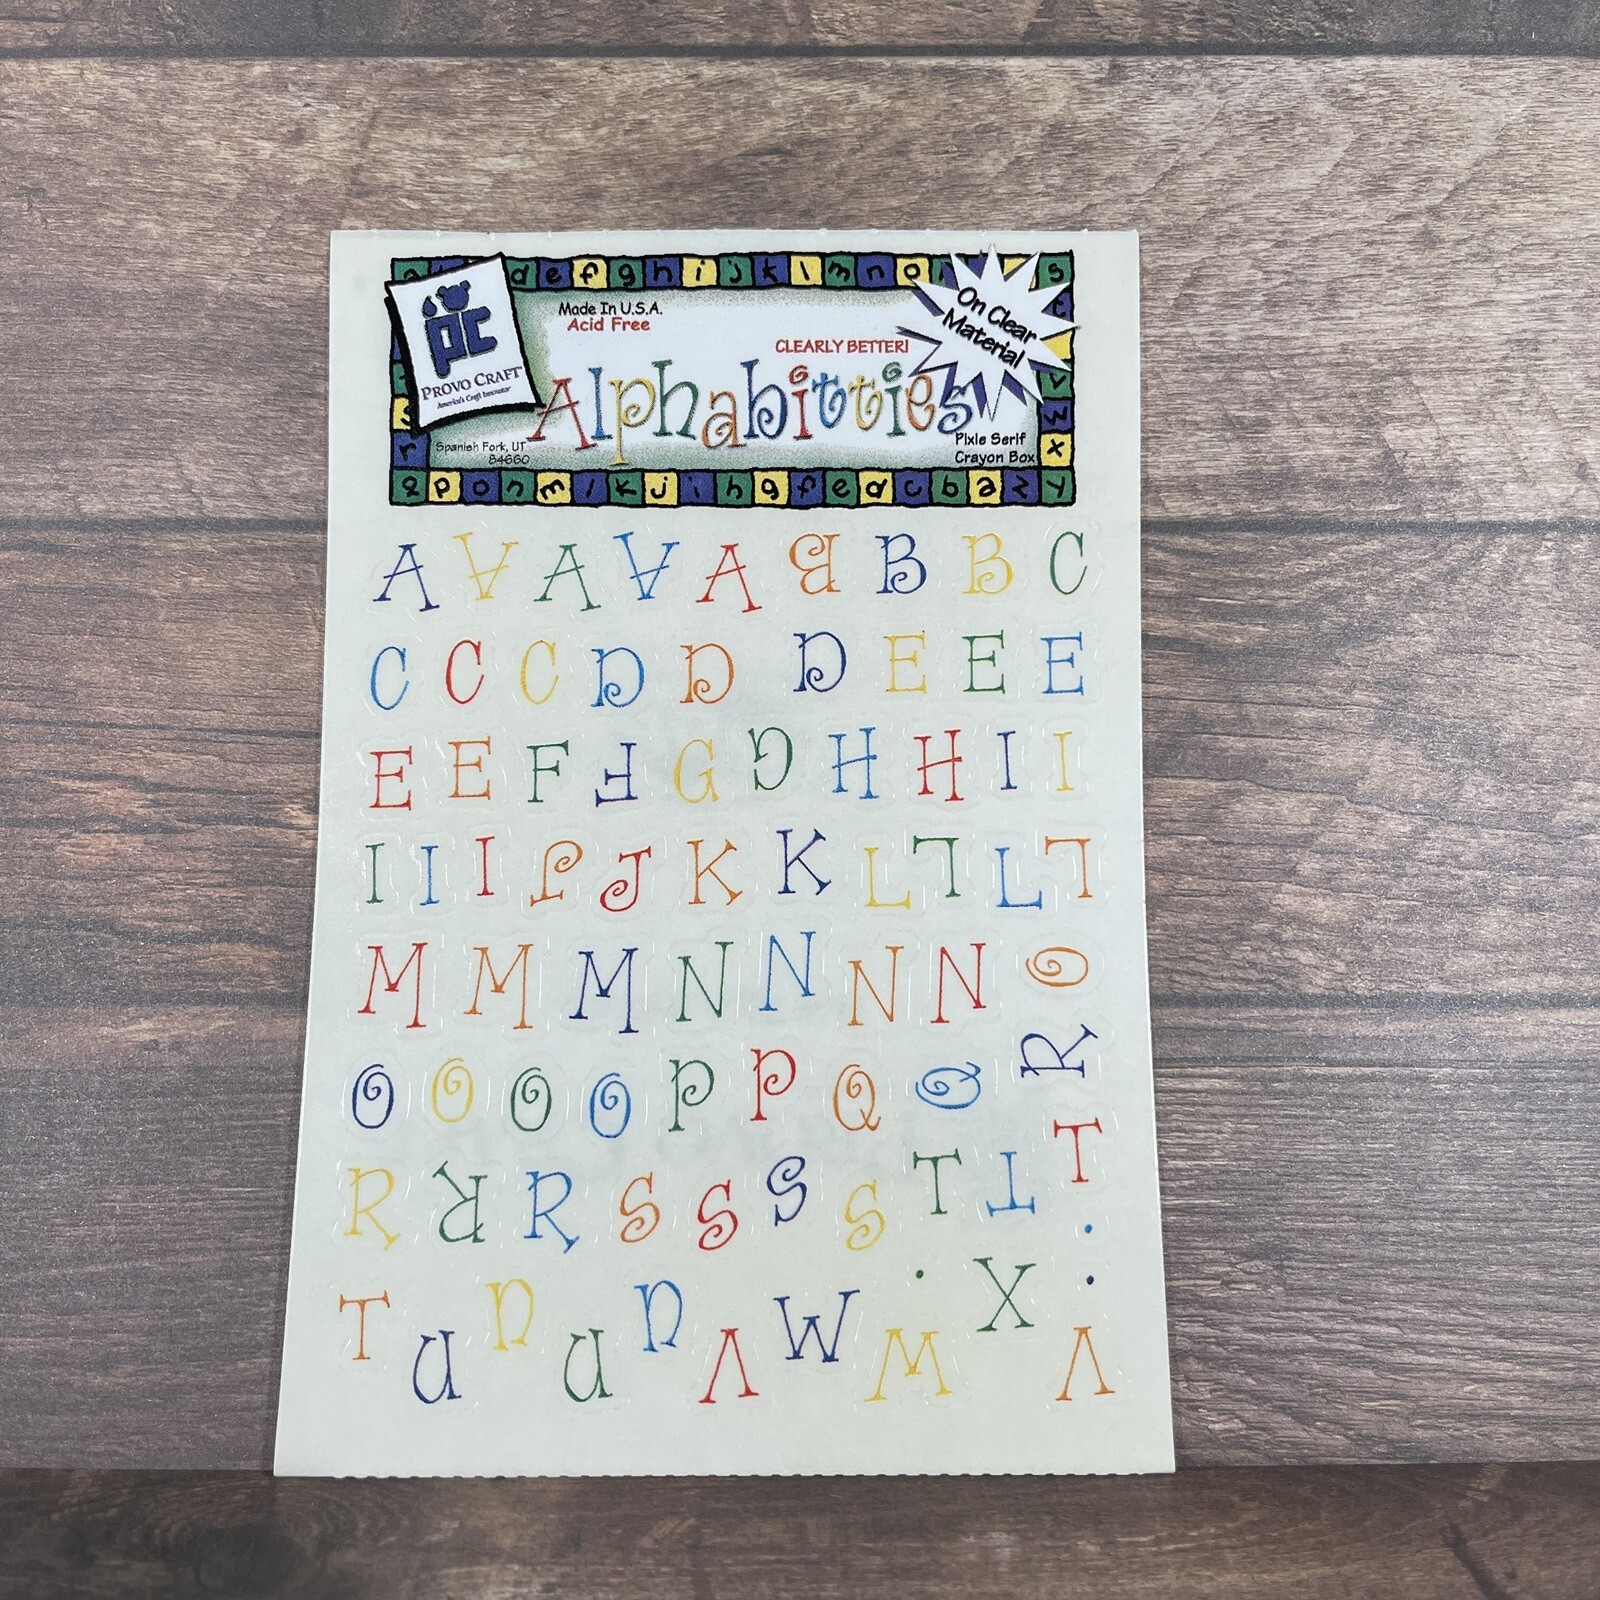 d e f g h i j k l m n o s
pc
PROVO CRAFT
America's Craft Innovator
Spanish Fork, UT
84660
Made In U.S.A.
Acid Free
CLEARLY BETTER!
Alphabitties
On Clear
Material
Pixie Serif
Crayon Box
v
w
x
r
q p o n m l k j i h g f e d c b a z y
A A A A A B B B C
C C C D D D E E E
E E F F G G H H I I
I I I J J K K L L L L
M M M N N N N O
O O O O P P Q Q R
R R R S S S S T T T
T U U U U V W W . X . . V